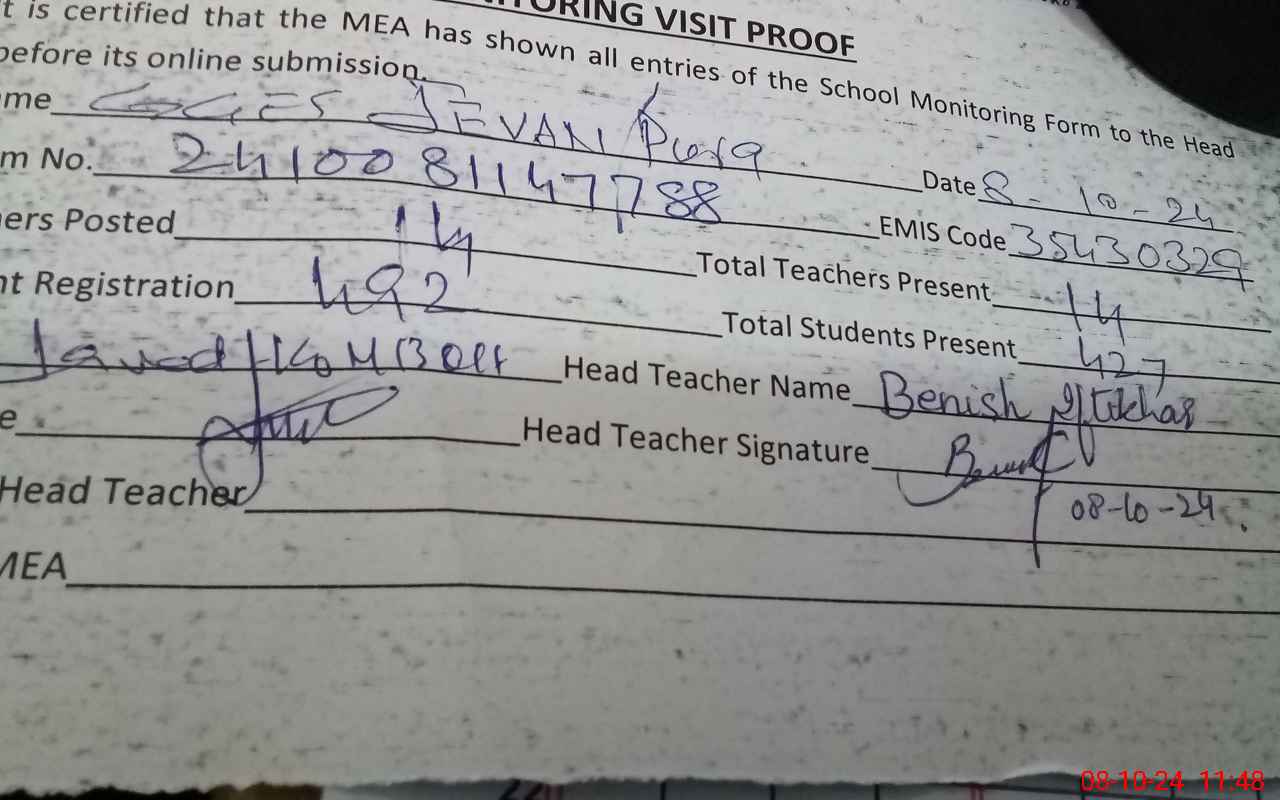 NITORING VISIT PROOF
t is certified that the MEA has shown all entries of the School Monitoring Form to the Head
before its online submission.
me GGES JEVAN Pura Date 8-10-24
m No. 2410081147788 EMIS Code 35430329
ers Posted 14 Total Teachers Present 14
nt Registration 492 Total Students Present 427
Javed Head Teacher Name Benish Iftikhar
e Head Teacher Signature
08-10-24
Head Teacher
MEA
08-10-24 11:48